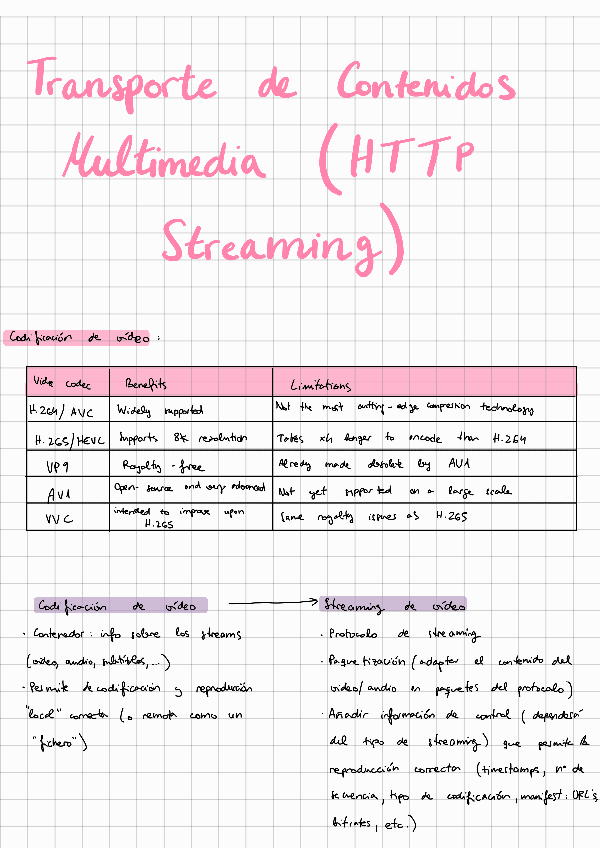 Transporte de Contenidos
Multimedia (HTTP
Streaming)
Codificación de vídeo :
Video codec Benefits Limitations
H.264/ AVC Widely supported Not the most cutting-edge compression technology
H.265/HEVC Supports 8K resolution Takes x4 longer to encode than H.264
VP9 Royalty-free Already made obsolete by AV1
AV1 Open-source and very advanced Not yet supported on a large scale
VVC intended to improve upon
H.265 Same royalty issues as H.265
Codificación de vídeo
· Contenedor: info sobre los streams
(video, audio, subtítulos, ...)
· Permite decodificación y reproducción
"local" correcta (o remota como un
"fichero")
Streaming de vídeo
· Protocolo de streaming
· Paquetización (adaptar el contenido del
video/audio en paquetes del protocolo)
· Añadir información de control (dependerá
del tipo de streaming) que permite la
reproducción correcta (timestamps, nº de
secuencia, tipo de codificación, manifest: URL's,
bitrates, etc.)